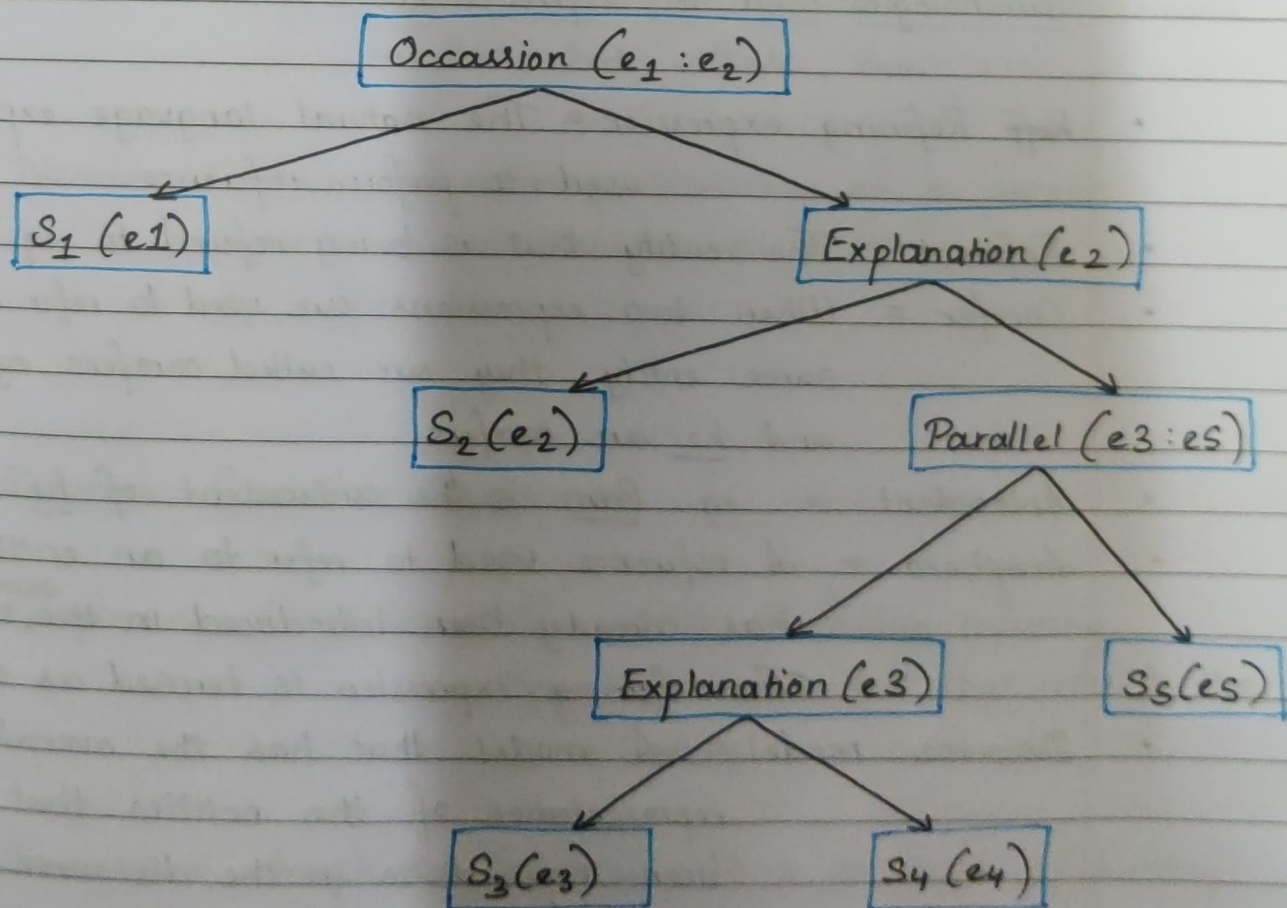 Occassion (e1 : e2)
S1 (e1)
Explanation (e2)
S2 (e2)
Parallel (e3 : e5)
Explanation (e3)
S5 (e5)
S3 (e3)
S4 (e4)